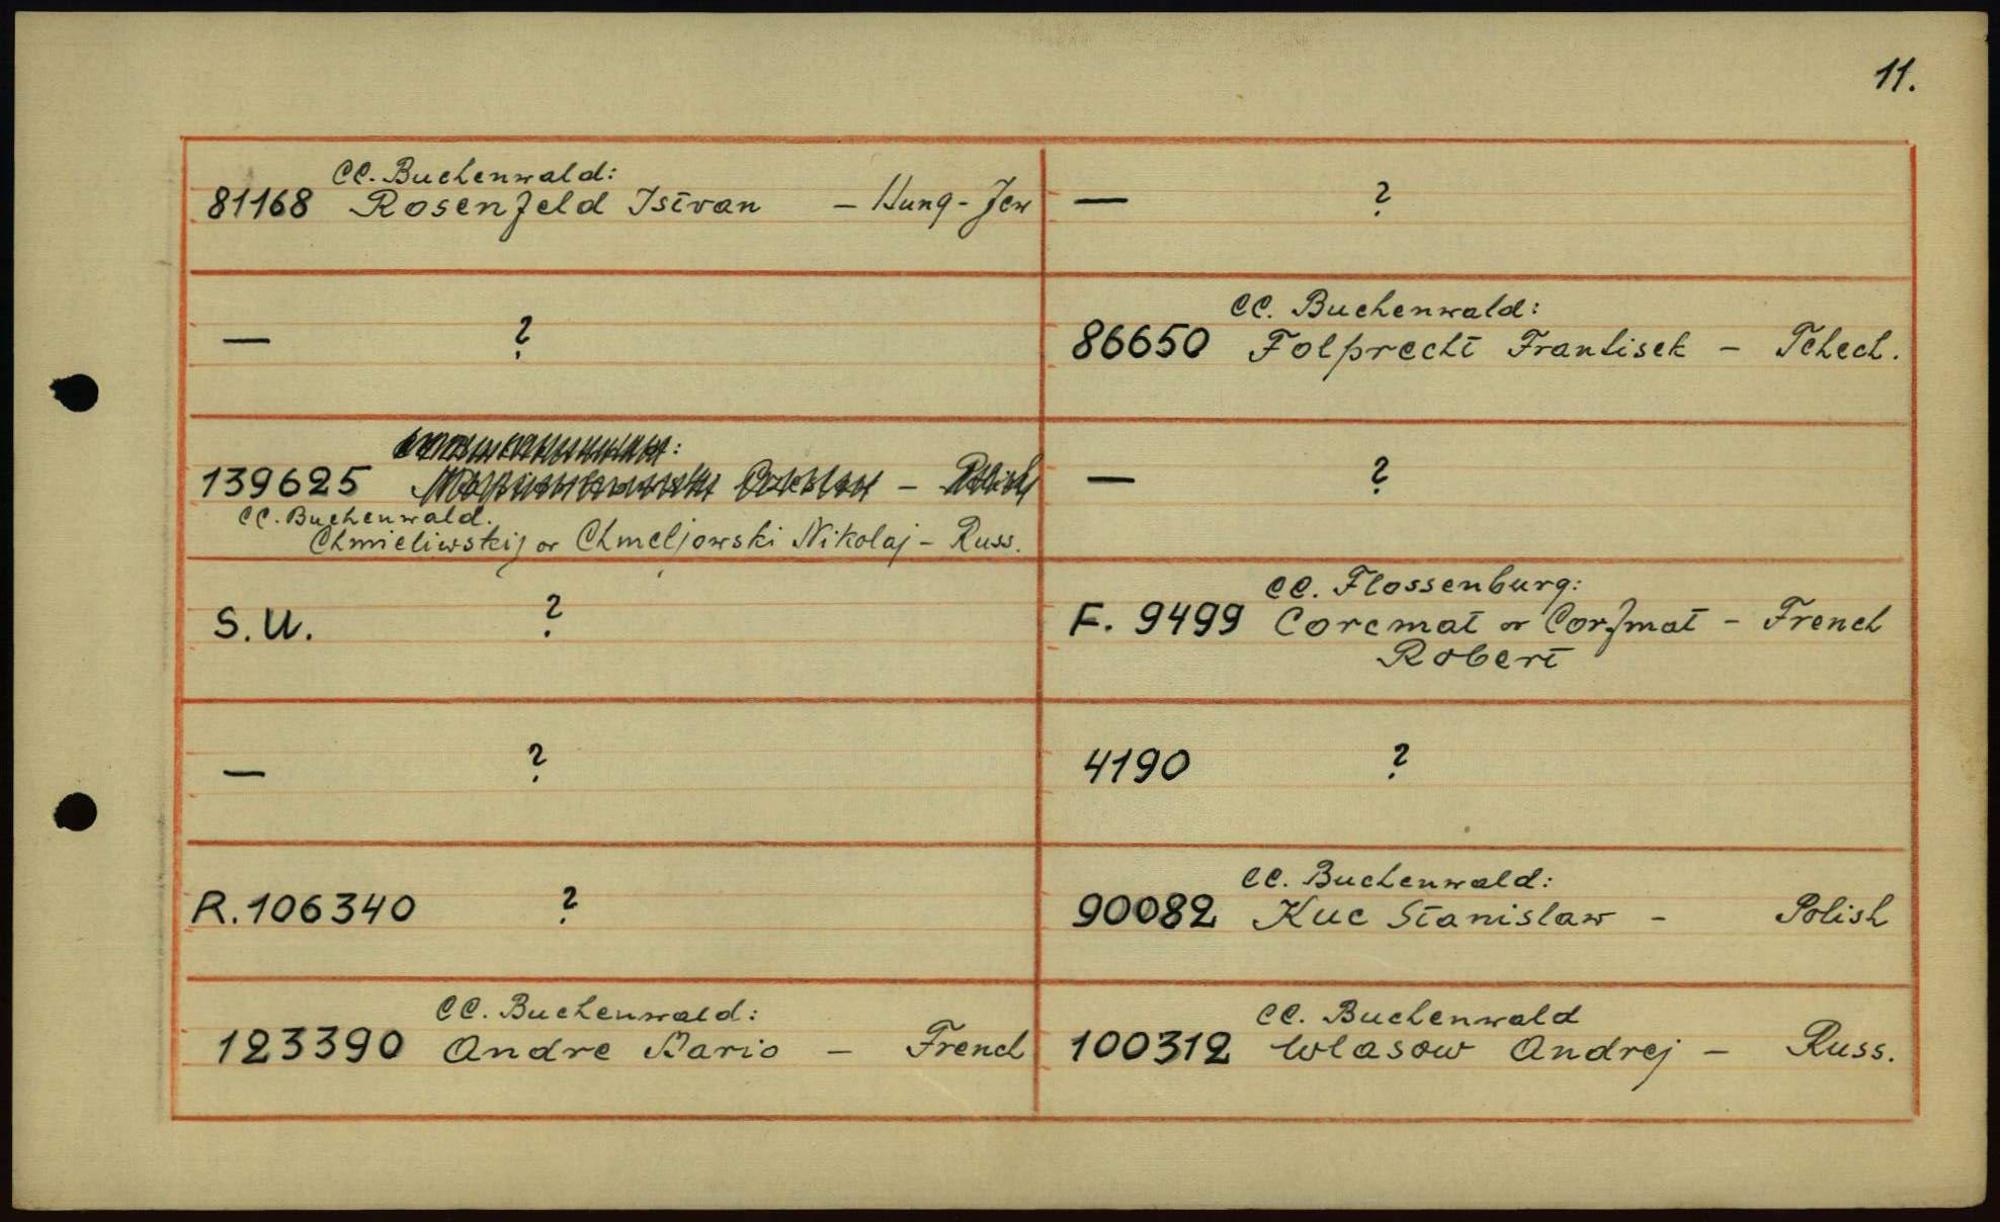 11.
CC. Buchenwald:
81168 Rosenfeld Istvan - Hung-Jew
— ?
— ?
CC. Buchenwald:
86650 Folprecht Frantisek - Tchech.
139625
CC. Buchenwald.
Chmieliwskij or Chmeljowski Nikolaj - Russ.
— ?
S.U. ?
CC. Flossenburg:
F. 9499 Coremat or Corfmat - French
Robert
— ?
4190 ?
R.106340 ?
CC. Buchenwald:
90082 Kuc Stanislaw - Polish
CC. Buchenwald:
123390 Andre - French
CC. Buchenwald
100312 Wlasow Andrej - Russ.